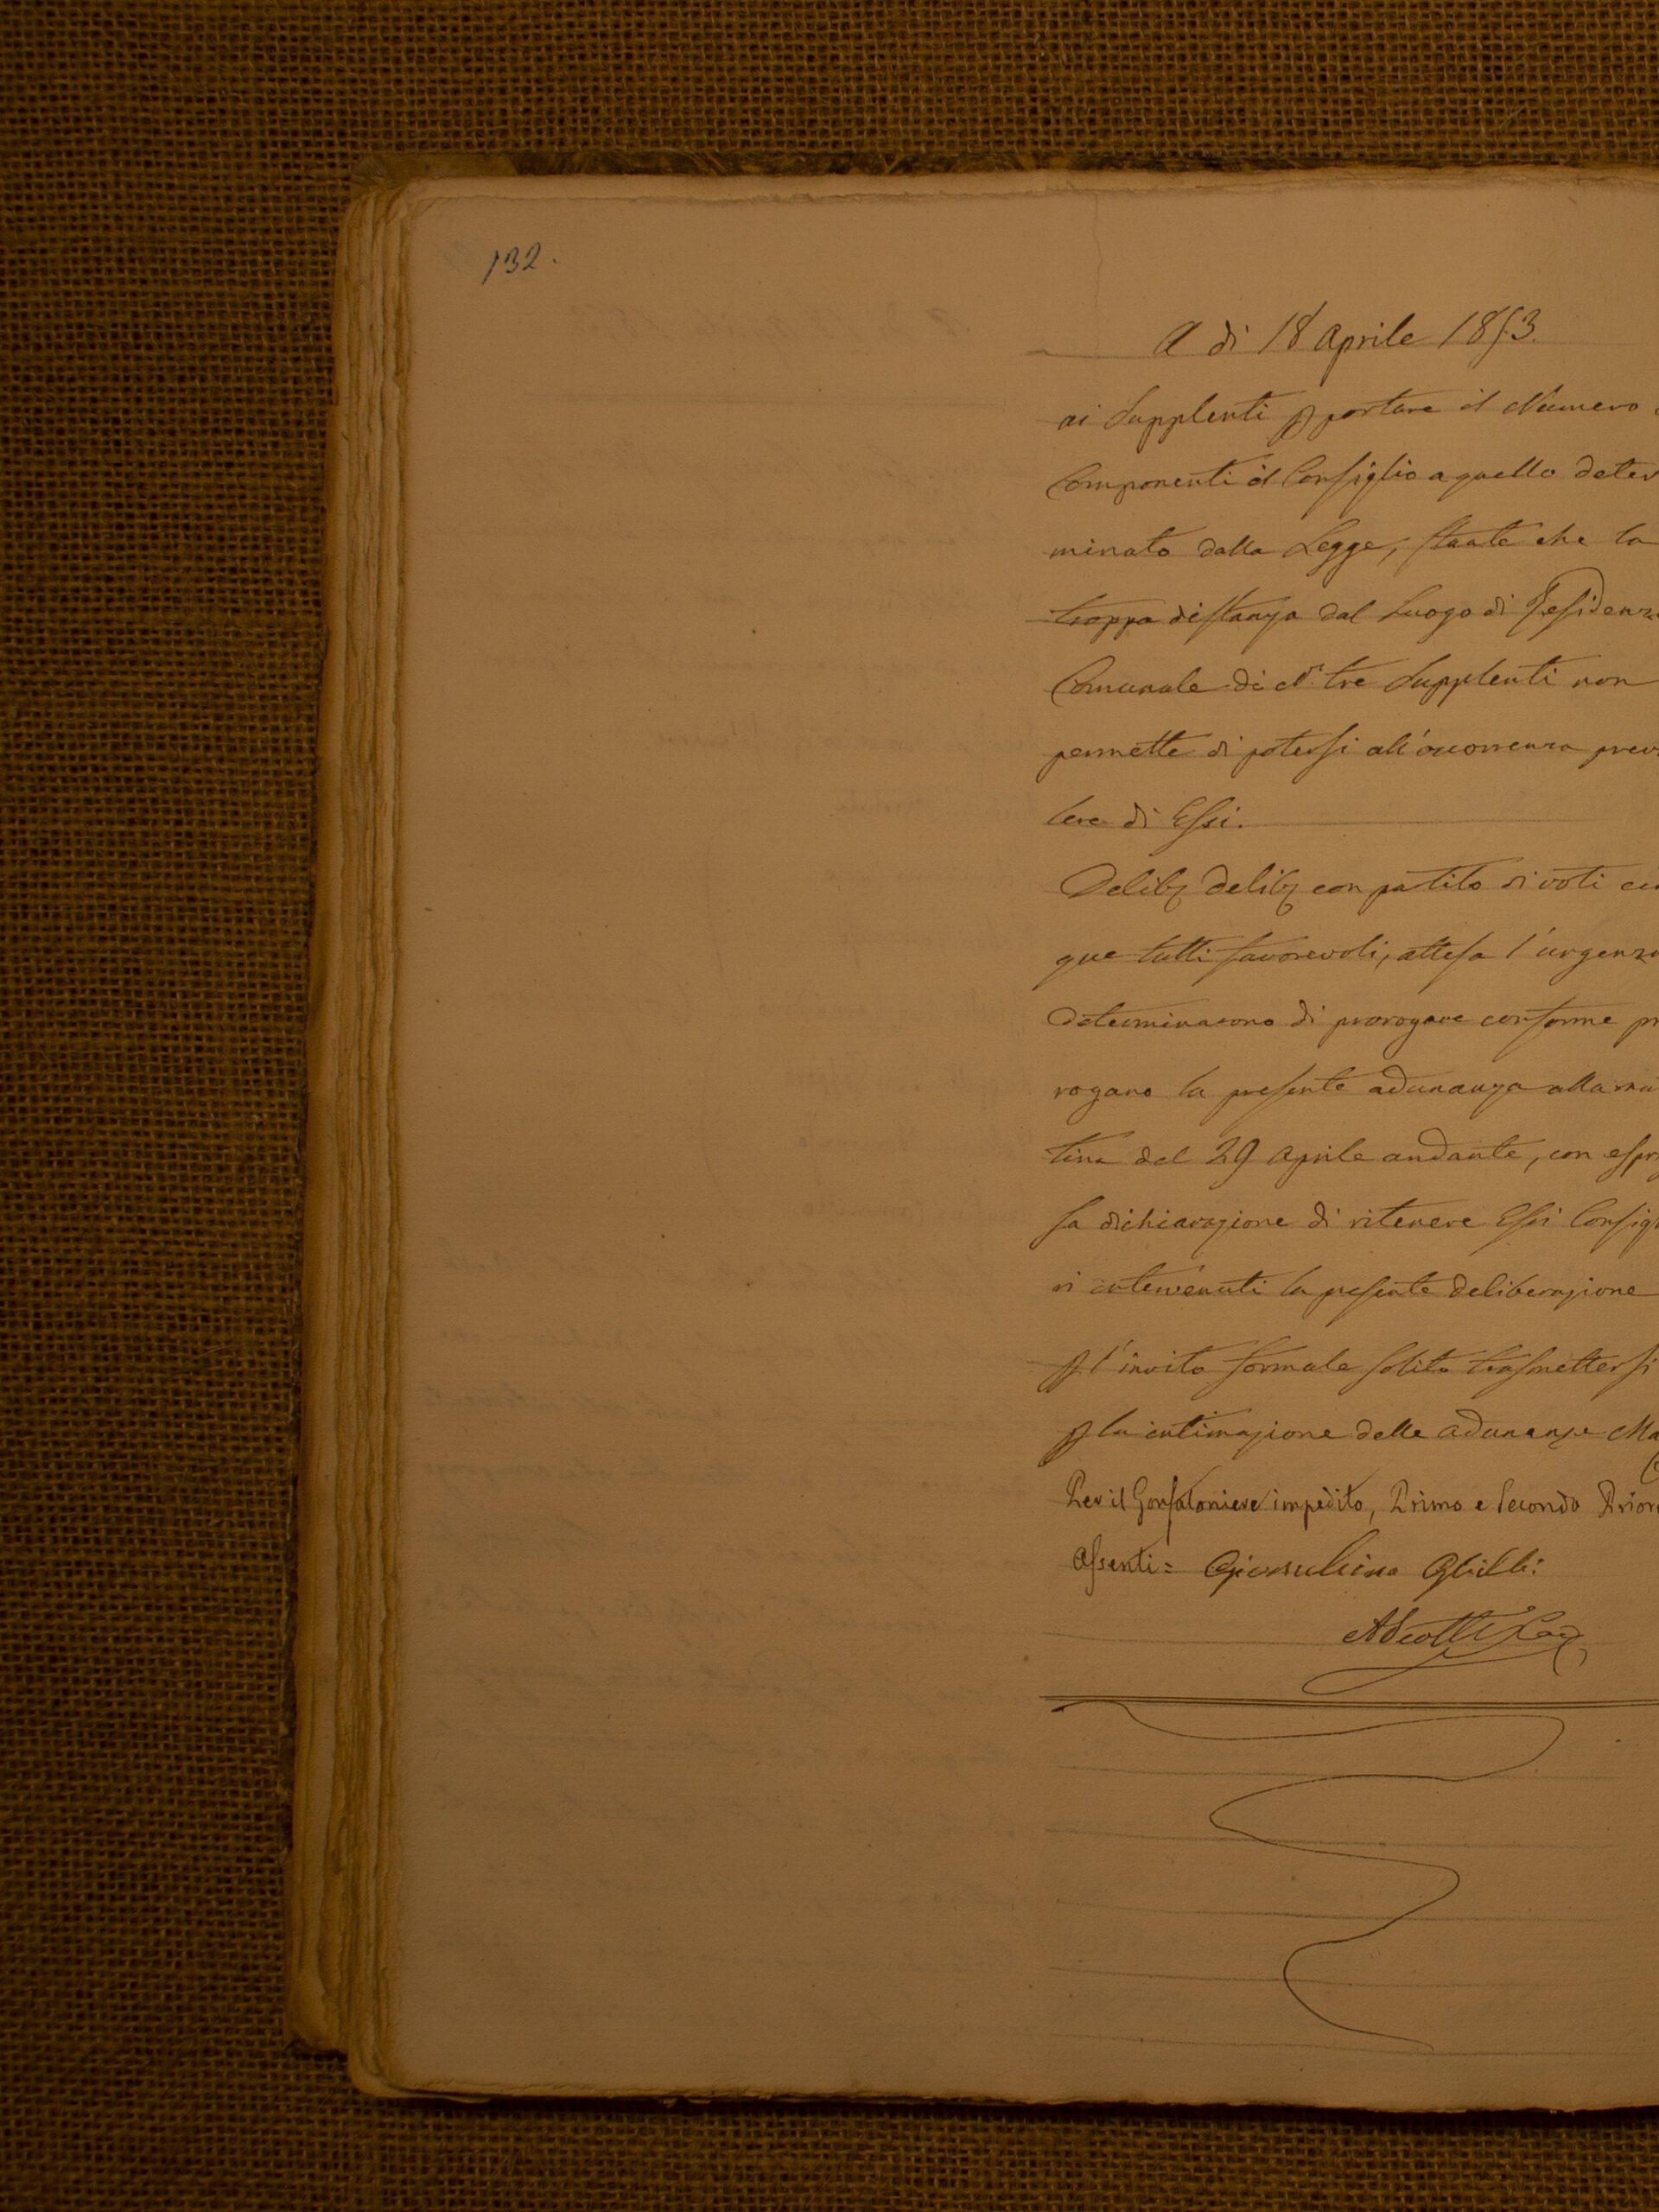 132.
A dì 18 Aprile 1853.
ai Supplenti p portare il Numero
Componenti il Consiglio a quello deter
minato dalla Legge, stante che la
troppa distanza dal Luogo di Residenz
Comunale di N.° tre Supplenti non
permette di potersi all'occorrenza prev
lere di Essi.
Delib Delib con partito di voti cin
que tutti favorevoli, attesa l'urgenza
Determinarono di prorogare conforme pr
rogano la presente adunanza alla mat
tina del 29 Aprile andante, con espre
sa dichiarazione di ritenere Essi Consigl
ri intervenuti la presente deliberazione
p l'invito formale solito trasmettersi
p la intimazione delle adunanze Ma
Per il Gonfaloniere impedito, Primo e Secondo Prior
Assenti =